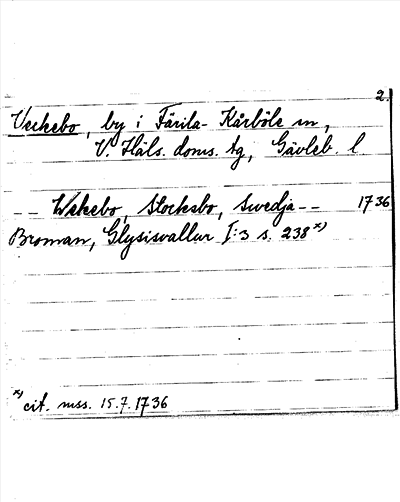 2.
Veckebo, by i Färila-Kårböle sn,
V. Häls. doms. tg, Gävleb. l
-- Wekebo, Stocksbo, Swedja -- 1736
Broman, Glysisvallur I:3 s. 238 x)
x) cit. mss. 15.7.1736